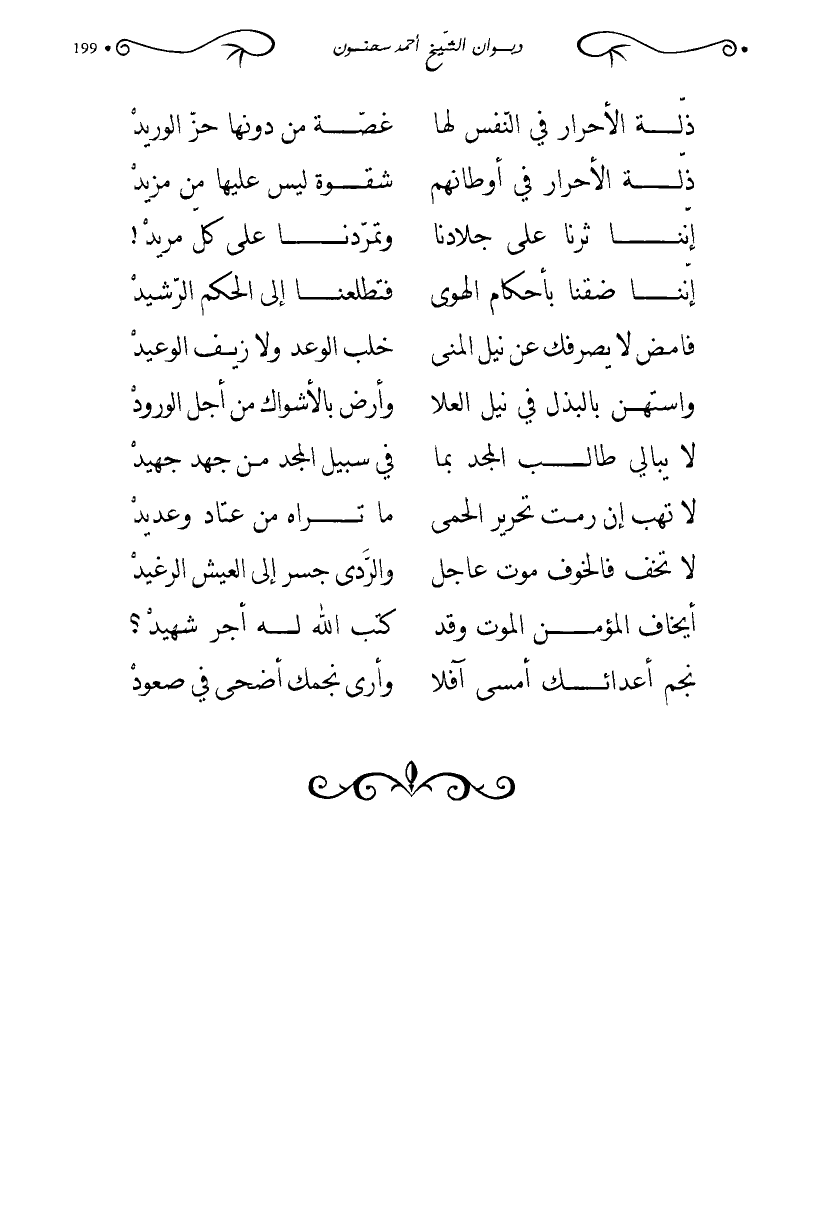 ديوان الشّيخ أحمد سحنون 199
ذلّة الأحرار في النّفس لها غصّة من دونها حزّ الوريدْ
ذلّة الأحرار في أوطانهم شقوة ليس عليها من مزيدْ
إنّنا ثرنا على جلادنا وتمرّدنا على كلّ مريدْ!
إنّنا ضقنا بأحكام الهوى فتطلعنا إلى الحكم الرّشيدْ
فامض لا يصرفك عن نيل المنى خلب الوعد ولا زيف الوعيدْ
واستهن بالبذل في نيل العلا وأرض بالأشواك من أجل الورودْ
لا يبالي طالب المجد بما في سبيل المجد من جهد جهيدْ
لا تهب إن رمت تحرير الحمى ما تراه من عتاد وعديدْ
لا تخف فالخوف موت عاجل والرَّدى جسر إلى العيش الرغيدْ
أيخاف المؤمن الموت وقد كتب الله له أجر شهيدْ؟
نجم أعدائك أمسى آفلا وأرى نجمك أضحى في صعودْ